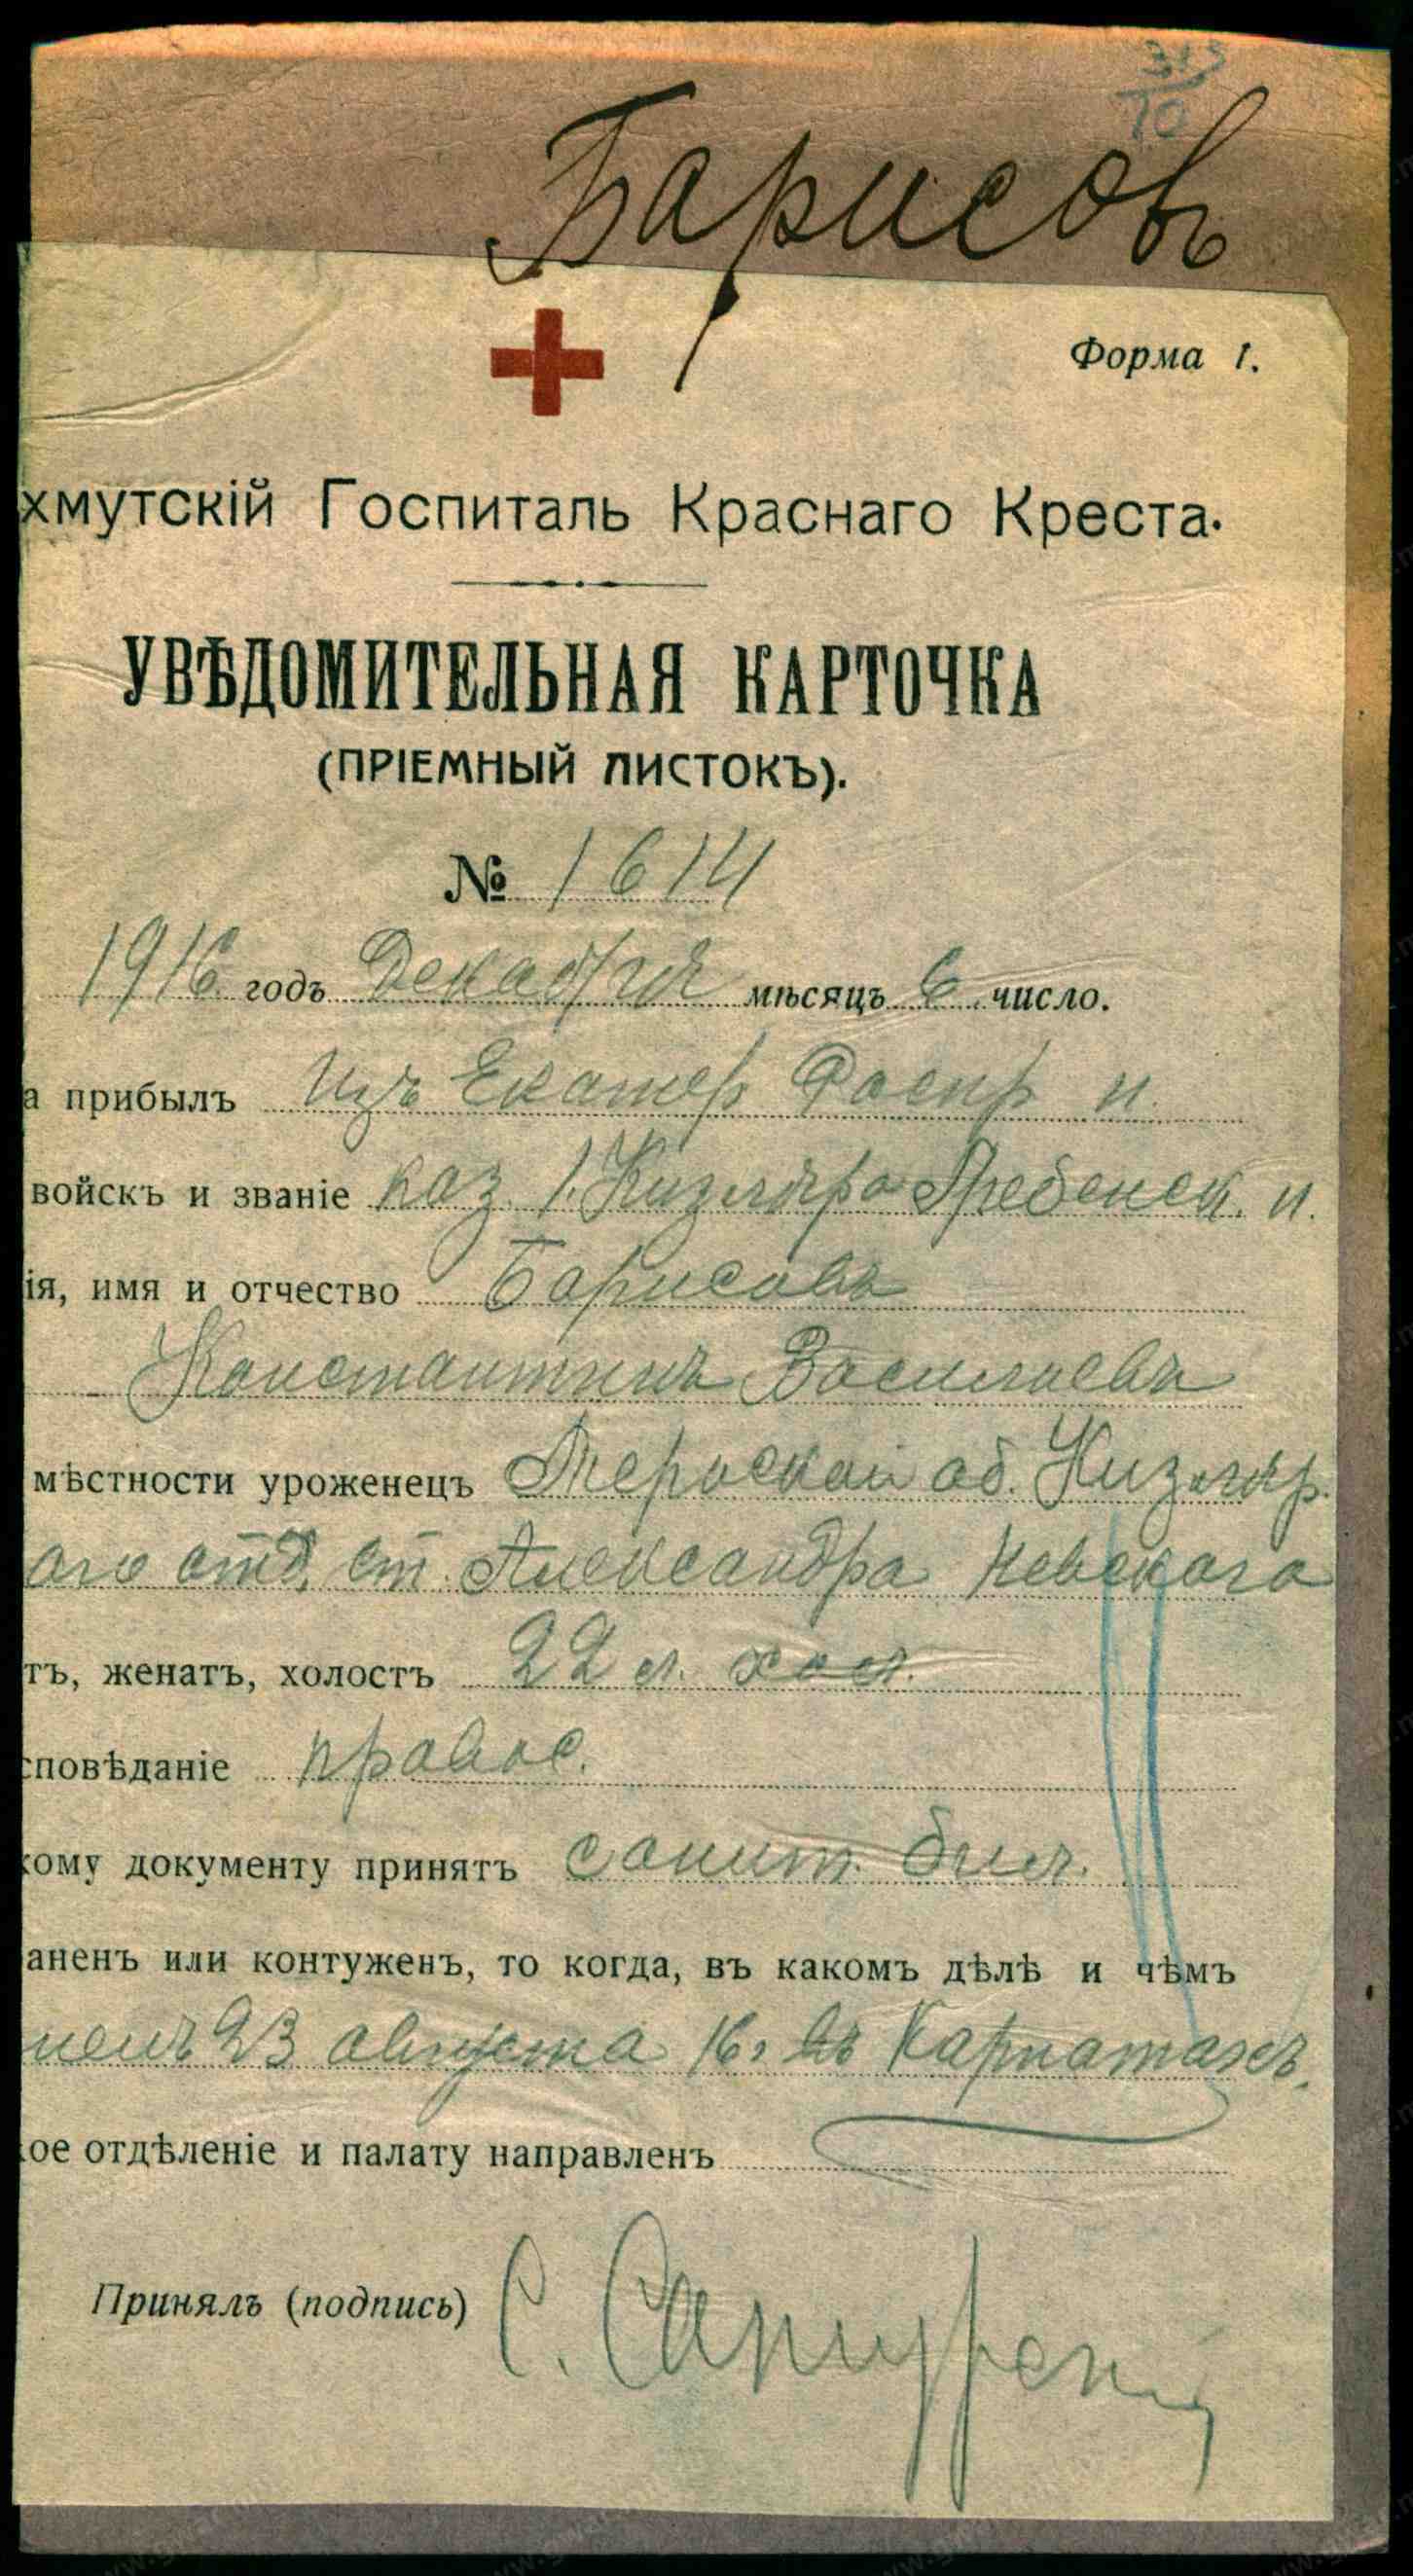 313
10
Барисовъ
Форма 1.
хмутскій Госпиталь Краснаго Креста.
УВѢДОМИТЕЛЬНАЯ КАРТОЧКА
(ПРІЕМНЫЙ ЛИСТОКЪ).
№ 1614
1916 годъ Декабря мѣсяцъ 6 число.
а прибылъ Изъ Екатер п.
войскъ и званіе каз. 1. Кизляро Гребенск. п.
ія, имя и отчество Барисовъ
Константинъ Васильевъ
мѣстности уроженецъ Терской об. Кизляр.
аго отд. ст. Александра Невскаго
тъ, женатъ, холостъ 22 л. хол.
сповѣданіе правос.
кому документу принятъ санит. бил.
аненъ или контуженъ, то когда, въ какомъ дѣлѣ и чѣмъ
ненъ 23 августа 16 г. въ Карпатахъ.
кое отдѣленіе и палату направленъ
Принялъ (подпись) С.